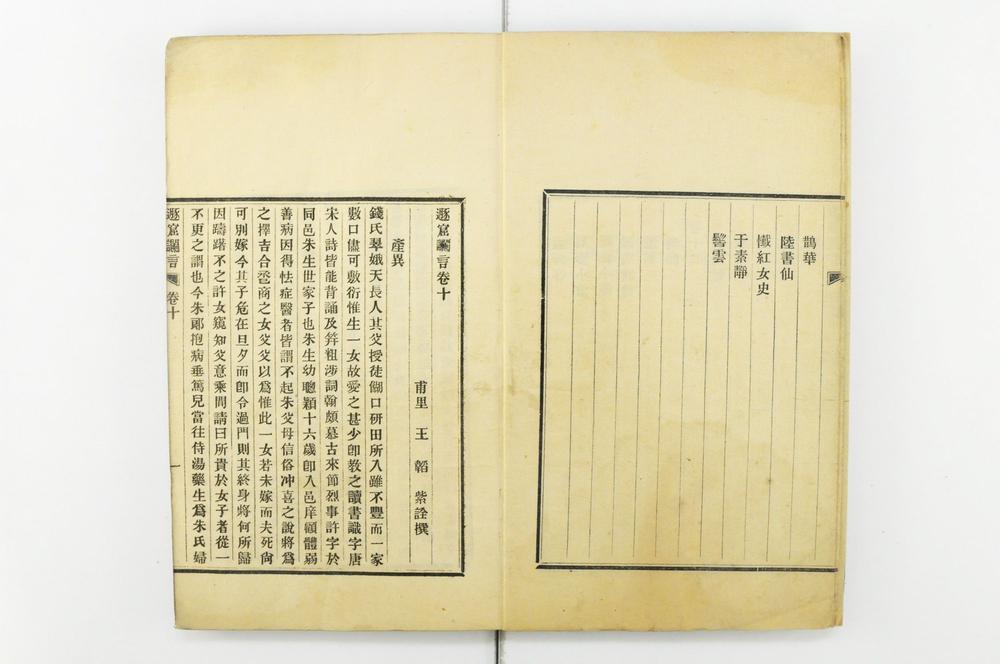 鵲華
陸書仙
懺紅女史
于素靜
髻雲
遯窟讕言卷十
甫里 王 韜 紫詮撰
產異
錢氏翠娥天長人其父授徒餬口硏田所入雖不豐而一家
數口儘可敷衍惟生一女故愛之甚少卽敎之讀書識字唐
宋人詩皆能背誦及笄粗涉詞翰頗慕古來節烈事許字於
同邑朱生世家子也朱生幼聰穎十六歲卽入邑庠顧體弱
善病因得怯症醫者皆謂不起朱父母信俗冲喜之說將爲
之擇吉合巹商之女父父以爲惟此一女若未嫁而夫死尙
可別嫁今其子危在旦夕而卽令過門則其終身將何所歸
因躊躇不之許女窺知父意乘間請曰所貴於女子者從一
不更之謂也今朱郞抱病垂篤兒當往侍湯藥生爲朱氏婦
遯窟讕言 卷十 一